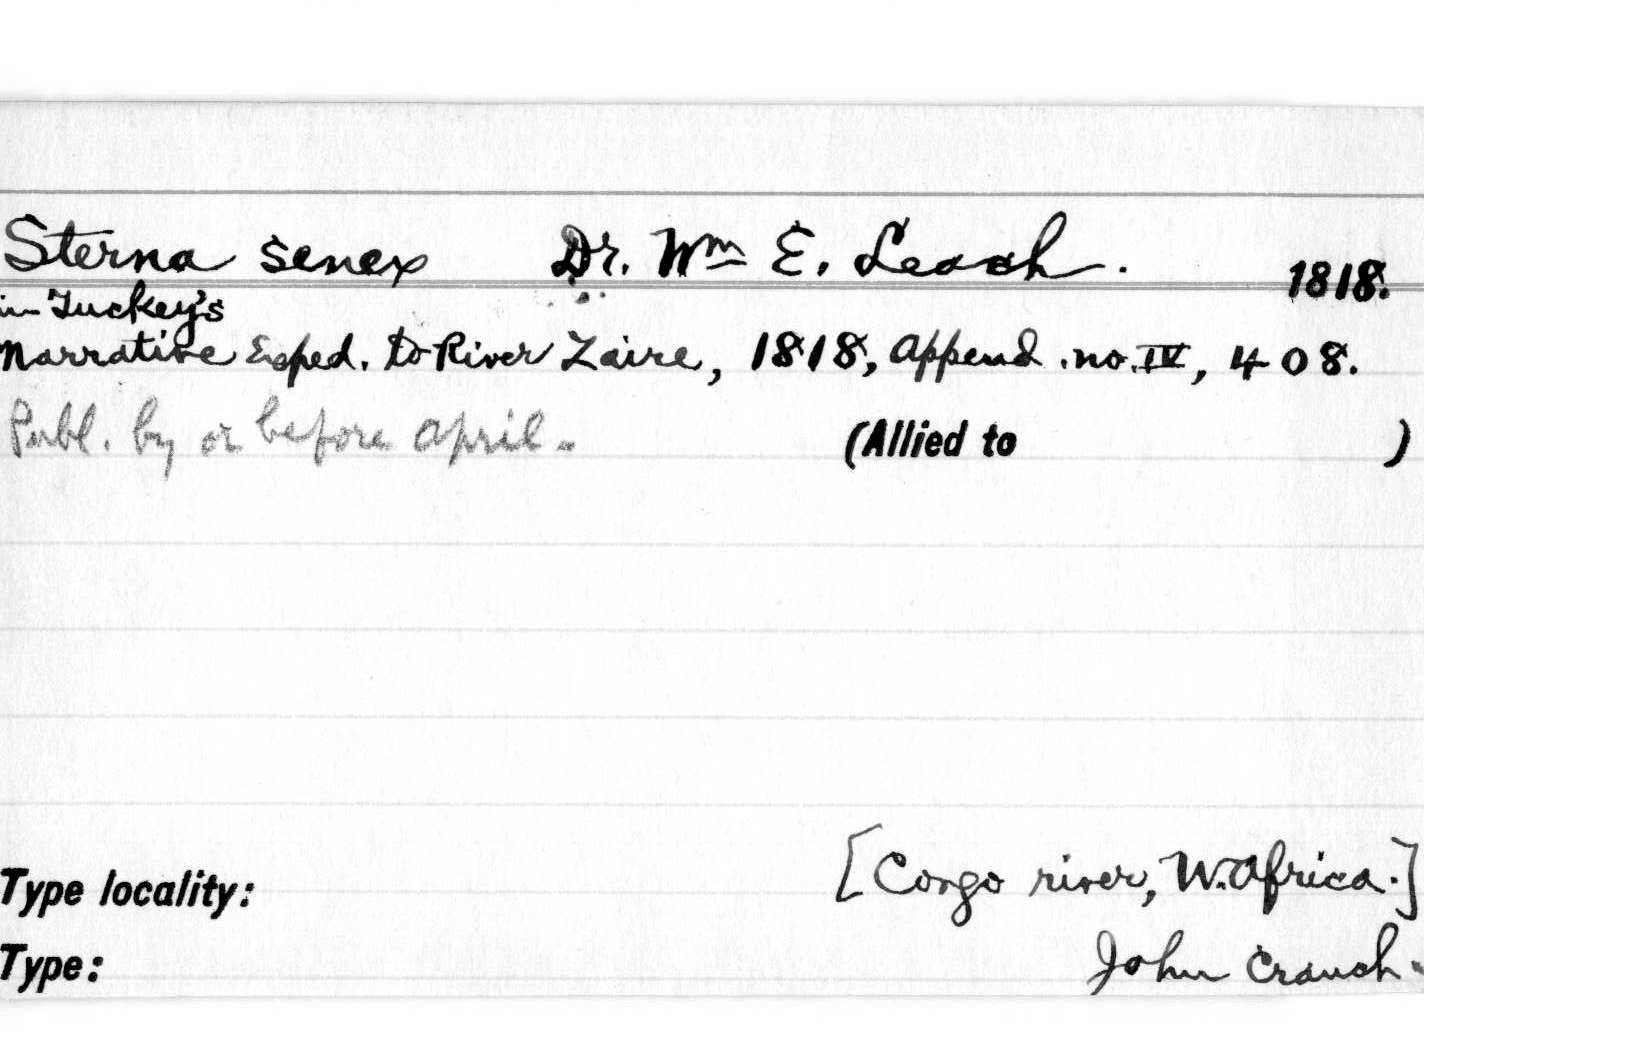 Sterna senex Dr. Wm E. Leach. 1818.
in Tuckey's
Narrative Exped. to River Zaire, 1818, Append. no. IV, 408.
Publ. by or before April.
(Allied to )
Type locality: [Congo river, W. Africa.]
Type: John Cranch.